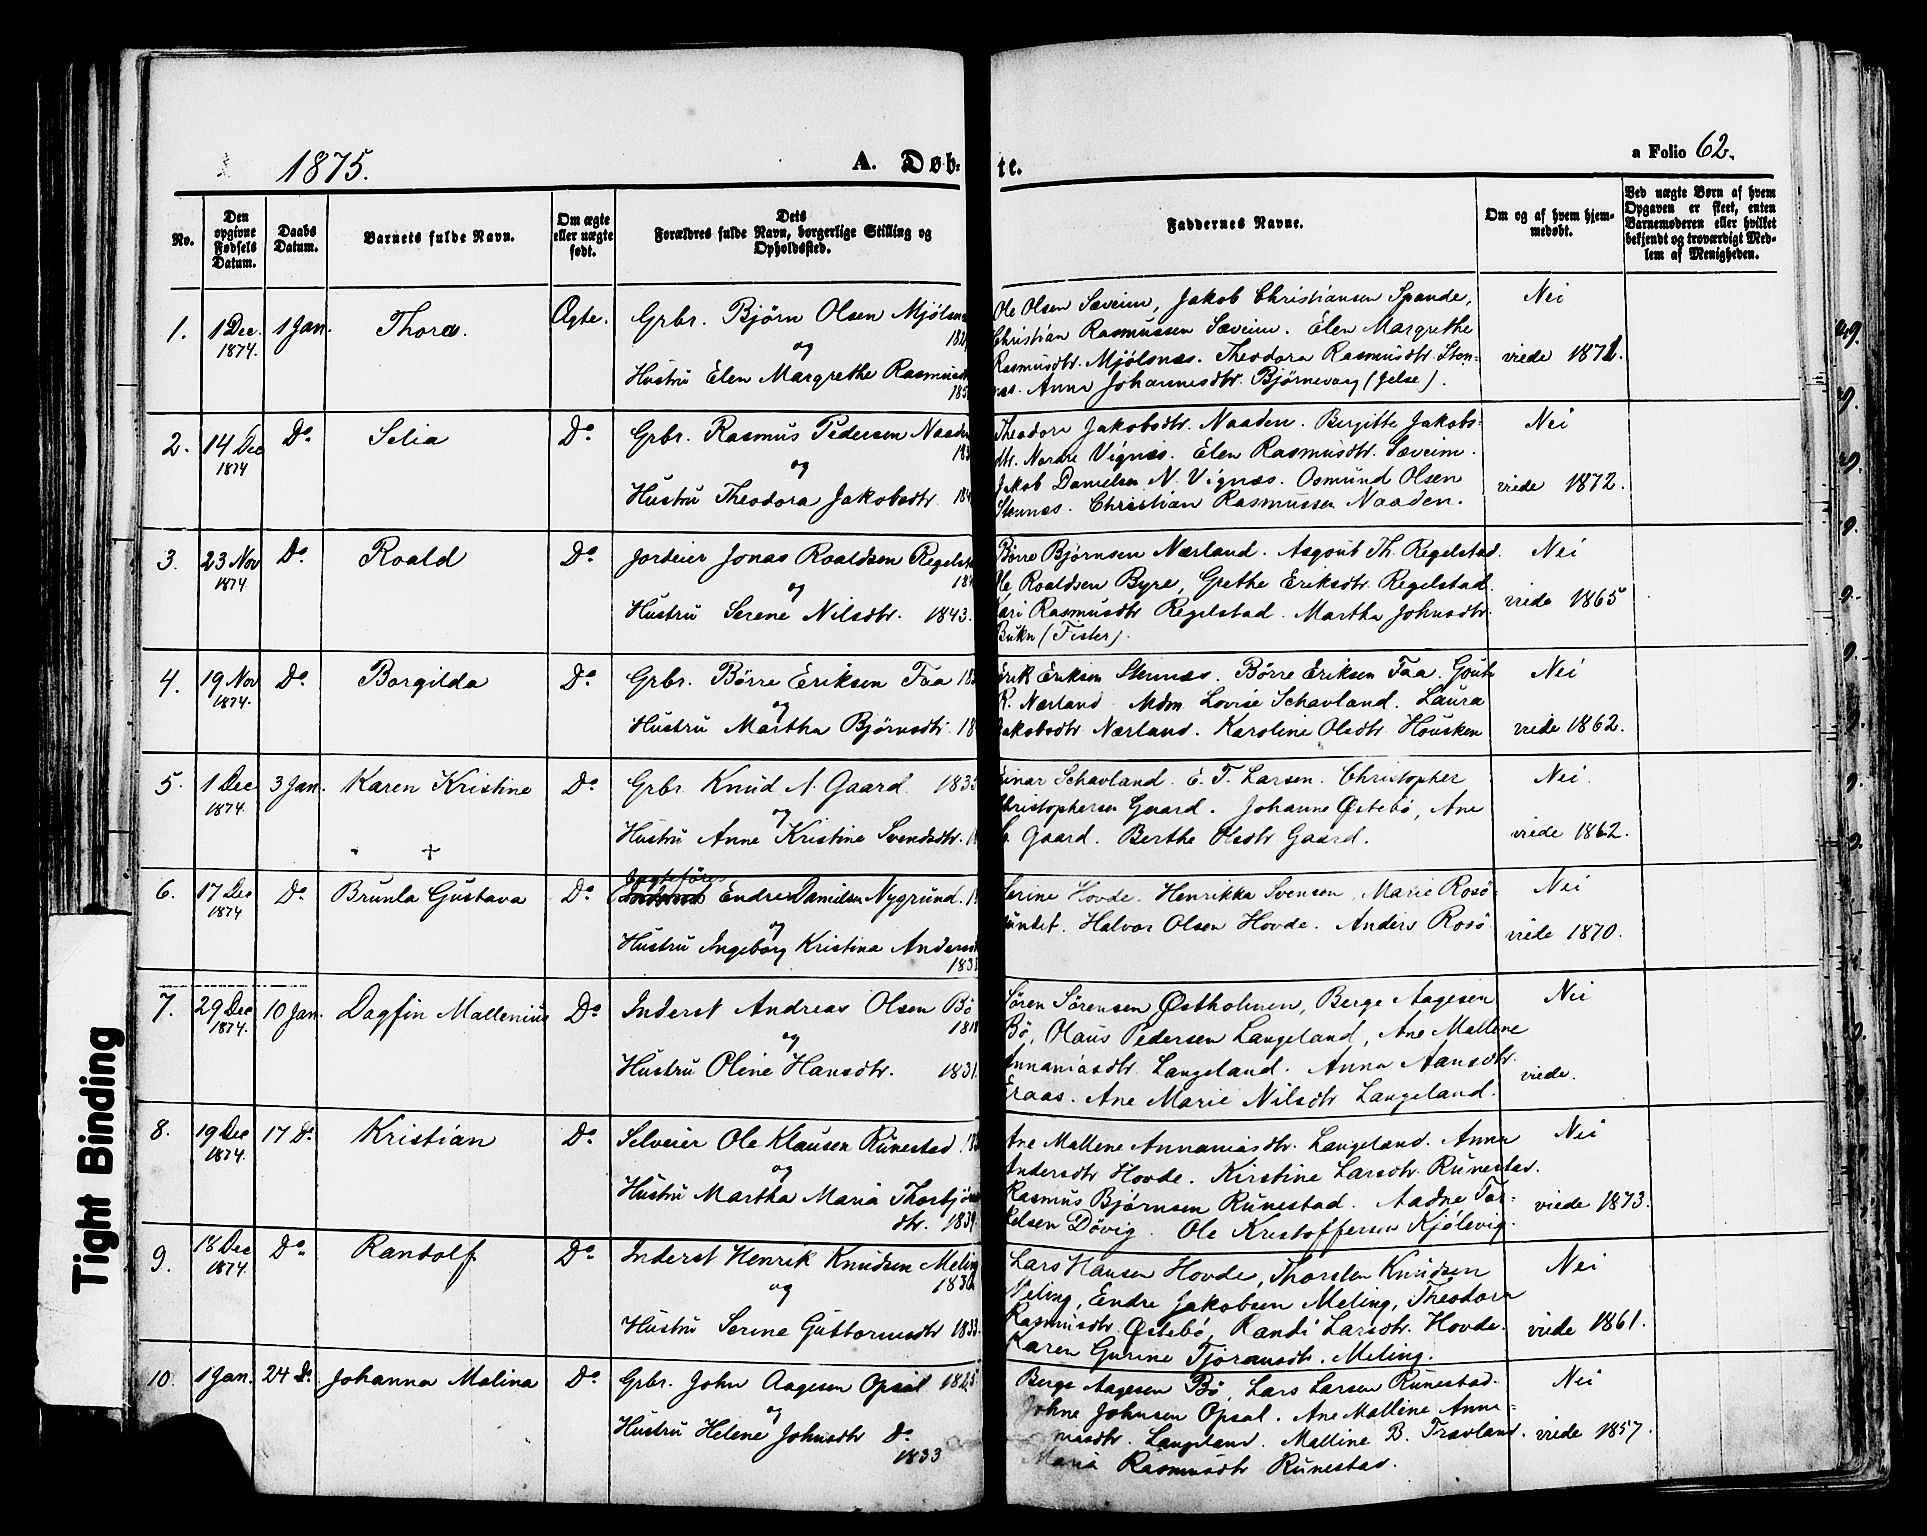 1875.
A. Døb-
te.
a Folio 62.
No.
Den opgivne Fødsels Datum.
Daabs Datum.
Barnets fulde Navn.
Om ægte eller uægte født.
Dets Forældres fulde Navn, borgerlige Stilling og Opholdssted.
Faddernes Navne.
Om og af hvem hjemmedøbt.
Ved uægte Børn af hvem Opgaven er skeet, enten Barnemoderen eller hvilket bekjendt og troværdigt Medlem af Menigheden.
1. 1 Dec. 1874. 1 Jan. Thora. Ægte.
Grbr. Bjørn Olsen
og
Hustru Elen Margrethe
Ole Olsen Sæveim, Jakob Christiansen Spande,
Christian Rasmussen Sæveim. Elen Margrethe
Rasmusdtr. Mjølsnæs. Theodora Rasmusdtr. Sten-
næs. Anna Johannesdtr. Bjørnevaag (Jelse).
Nei
viede 1871.
2. 14 Dec 1874 Do Selia Do
Grbr. Rasmus Pedersen Naaden
og
Hustru Theodora Jakobsdtr.
Theodora Jakobsdtr. Naaden. Bergitte Jakobs-
dtr. Nordre Vignæs. Elen Rasmusdtr. Sæveim.
Jakob Danielsen N. Vignæs. Osmund Olsen
Stennæs. Christian Rasmussen Naaden.
Nei
viede 1872.
3. 23 Nov 1874 Do Roald Do
Jordeier Jonas Roaldsen
og
Hustru Serene Nilsdtr. 1843.
Børre Bjørnsen Nærland. Asgout Th. Regelstad.
Ole Roaldsen Byre, Grethe Eriksdtr. Regelstad.
Kari Rasmusdtr Regelstad. Martha Johnsdtr.
Bukn (Fister).
Nei
viede 1865
4. 19 Nov 1874. Do Borgilda Do
Grbr. Børre Eriksen Faa
og
Hustru Martha Bjørnsdtr.
Erik Eriksen Stennæs. Børre Eriksen Faa. Gout
R. Nærland. Mdm. Lovise Schavland. Laura
Jakobsdtr Nærland. Karoline Olsdtr. Housken
Nei
viede 1862.
5. 1 Dec 1874 3 Jan. Karen Kristine Do
+
Grbr. Knud N. Gaard. 1835
og
Hustru Anne Kristine Svendsdtr.
Einar Schavland. E. T. Larsen. Christopher
Christophersen Gaard. Johanne Østebø, Ane
Gaard. Berthe Olsdtr Gaard.
Nei.
viede 1862.
6. 17 Dec 1874 Do Brunla Gustava Do
Jagtefører
Endre Danielsen Nygrund.
og
Hustru Ingeborg Kristina
Serine Hovde. Henrikka Svensen, Marie Rosø-
sundet. Halvor Olsen Hovde. Anders Rosø
Nei
viede 1870.
7. 29 Dec 1874. 10 Jan. Dagfin Mallenius Do
Inderst Andreas Olsen Bø
og
Hustru Oline Hansdtr. 1831.
Søren Sørensen Østholmen, Berge Aagesen
Bø, Olaus Pedersen Langeland, Ane Mallene
Annaniasdtr. Langeland. Anna Aansdtr.
Eraas. Ane Marie Nilsdtr Langeland.
Nei
viede.
8. 19 Dec 1874. 17 Do Kristian Do
Selveier Ole Klausen Runestad
og
Hustru Martha Maria
dtr. 1839
Ane Mallene Annaniasdtr. Langeland. Anna
Andersdtr Hovde. Kirstine Larsdtr. Runestad.
Rasmus Bjørnsen Runestad. Aadne Tor-
kelsen Døvig. Ole Kristoffersen Kjølevig.
Nei
viede 1873.
9. 18 Dec 1874. Do Randolf. Do
Inderst Henrik Knudsen Meling
1830
og
Hustru Serine Guttormsdtr 1833.
Lars Hansen Hovde, Thorsten Knudsen
Meling, Endre Jakobsen Meling, Theodora
Rasmusdtr Østebø, Randi Larsdtr. Hovde.
Karen Gurine Tjøransdtr. Meling.
Nei
viede 1861.
10. 1 Jan. 24 Do Johanna Malina Do
Grbr. John Aagesen Opsal 1825
og
Hustru Helene Johnsdtr Do
1833
Berge Aagesen Bø, Lars Larsen Runestad.
Johne Johnsen Opsal. Ane Mallene Anna-
niasdtr. Langeland. Malline B. Trævland.
Maria Rasmusdtr Runestad.
Nei
viede 1857.
Tight Binding